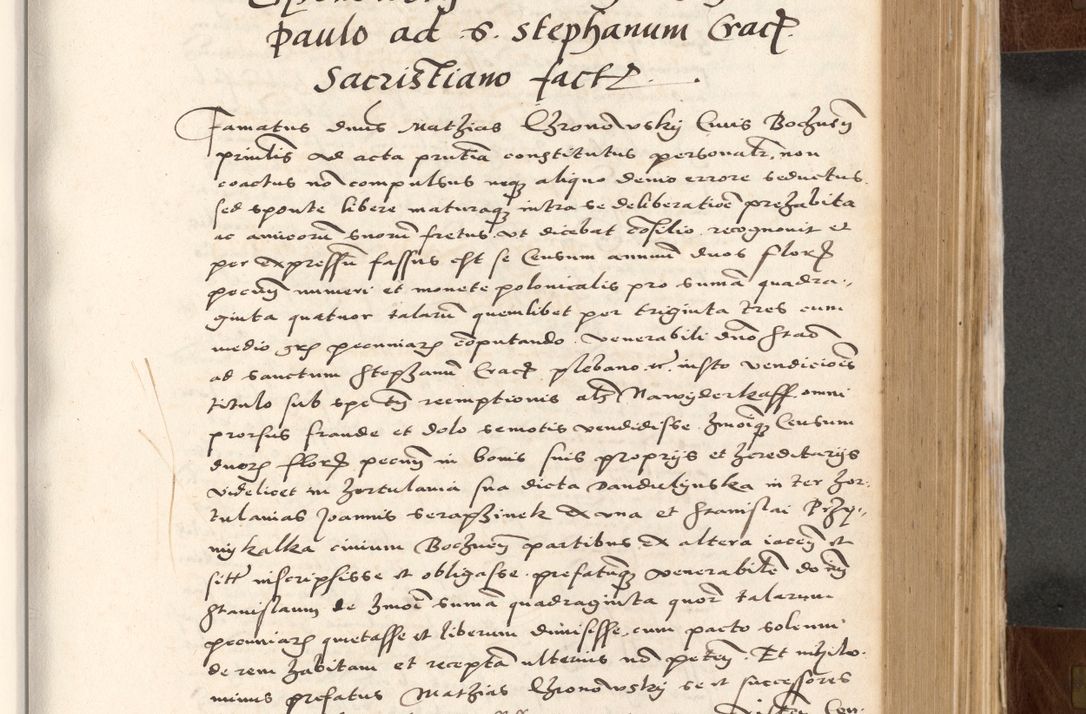 Paulo ad S. Stephanum Crac.
Sacristiano facte
Famatus dnus Mathias Chronowsky Civis Bochnen
printis ad acta prntia constitutus personalr. non
coactus no compulsus neq aliquo demo errore seductus.
sed sponte libere maturaq intra se deliberatioe prehabita
ac amicorum suorum fretus ut dicebat cosilio. recognovit et
per expressu fassus est se Censum annuum duos flor
pecun numeri et monete polonicalis pro suma quadra-
ginta quatuor talarum quemlibet per triginta tres cum
medio gr pecuniar coputando. venerabili dno Stao
ad sanctum Stephanu Crac plebano iusto vendiciois
titulo sub spe tn reemptionis als Nawyderkaff. omni
prorsus fraude et dolo semotis vendidisse. Hmoiq Censum
duor flor pecun in bonis suis proprijs et hereditarijs
videlicet in hortulania sua dicta Dandulynska inter hor-
tulanias Joannis Seraphinek ex una et Stanislai Przy-
mykalka civium Bochnen partibus ex altera iacen et
sitt inscripsisse et obligasse. prefatumq venerabile dominum
Stanislaum de hmoi suma quadraginta quor talarum
pecuniar quietasse et liberum dimisisse. cum pacto solenni
de rem habitam et recepta ulterius no peten. Et nihilo-
minus prefatus Mathias Chronowsky se et successores